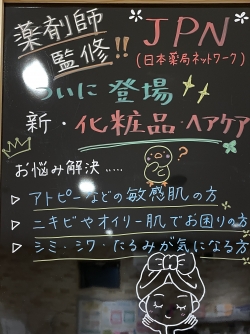 薬剤師
監修!!
JPN
(日本薬局ネットワーク)
ついに登場
新・化粧品・ヘアケア
?
お悩み解決……
▷ アトピーなどの敏感肌の方
▷ ニキビやオイリー肌でお困りの方
▷ シミ・シワ・たるみが気になる方